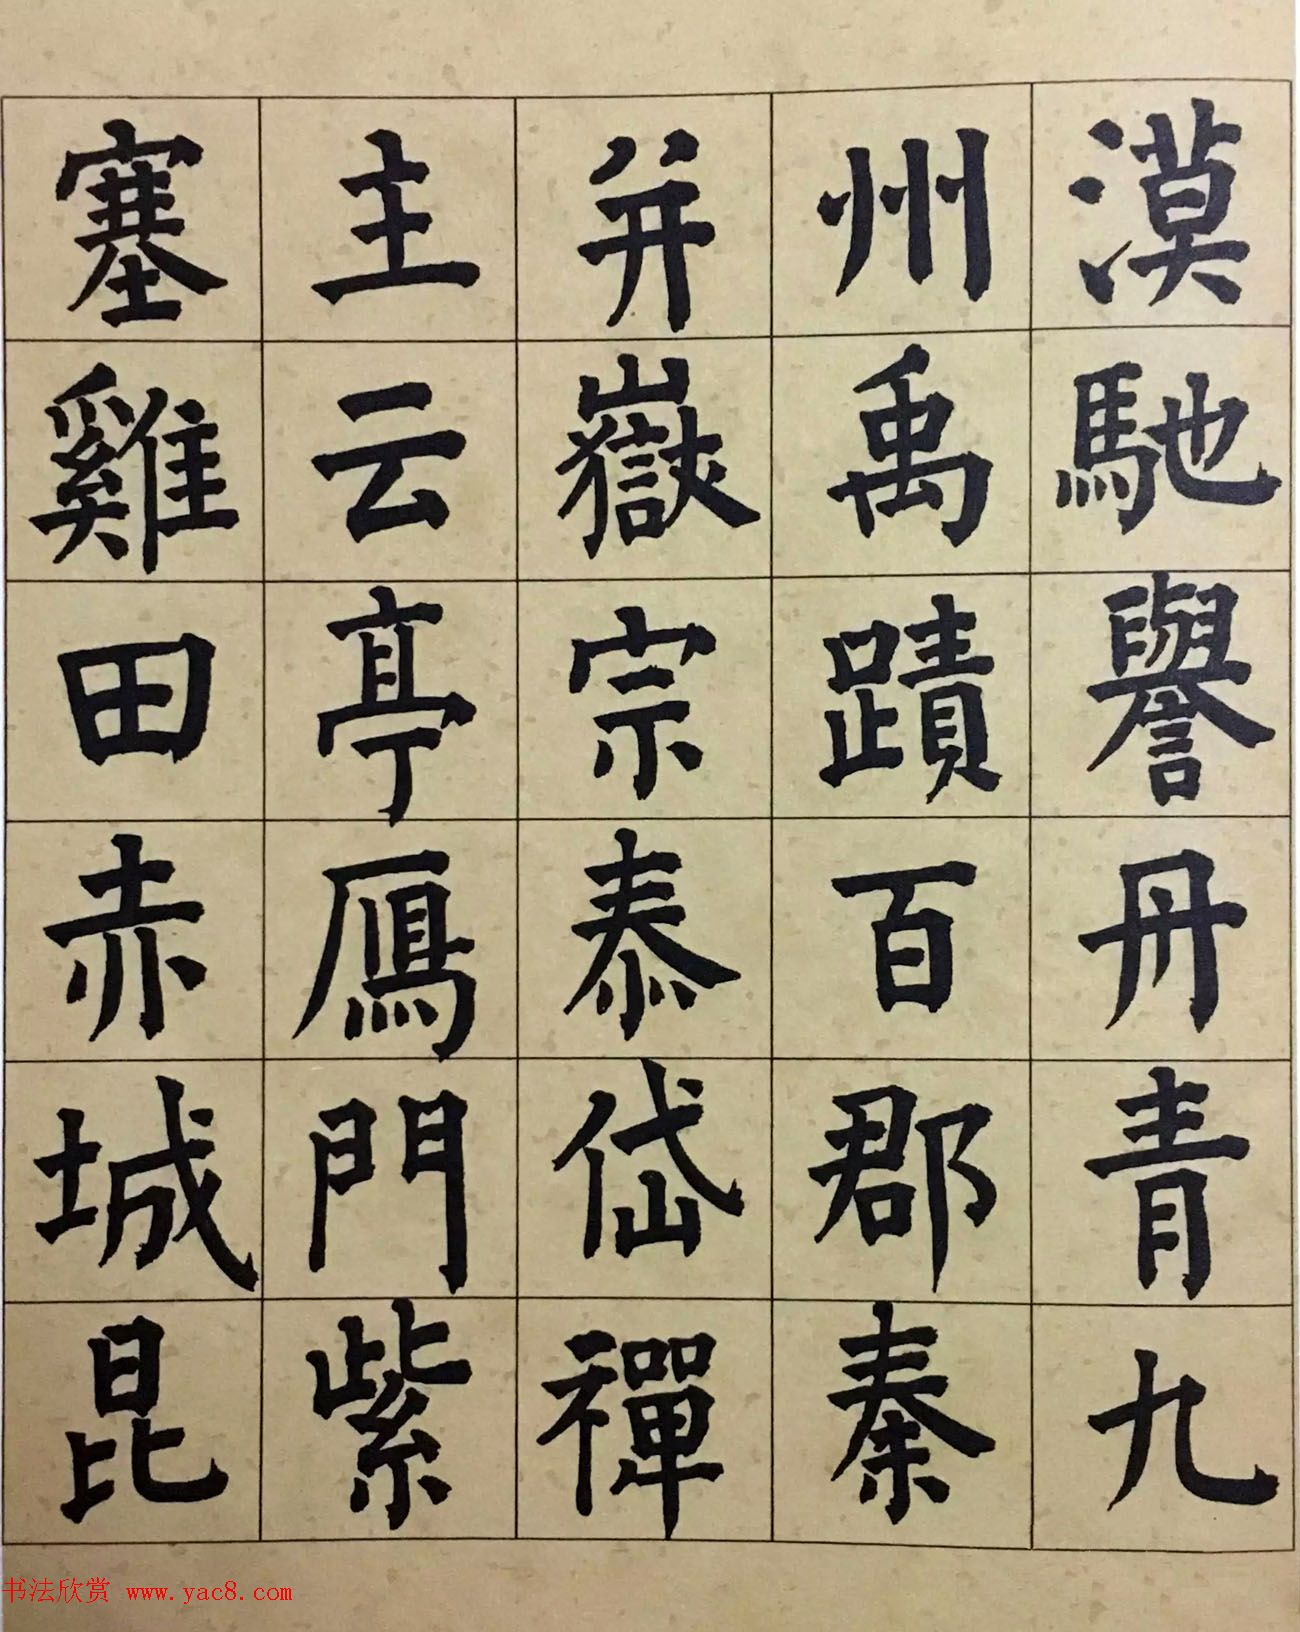 漠馳譽丹青九
州禹蹟百郡秦
并嶽宗泰岱禪
主云亭鴈門紫
塞雞田赤城昆
书法欣赏 www.yac8.com